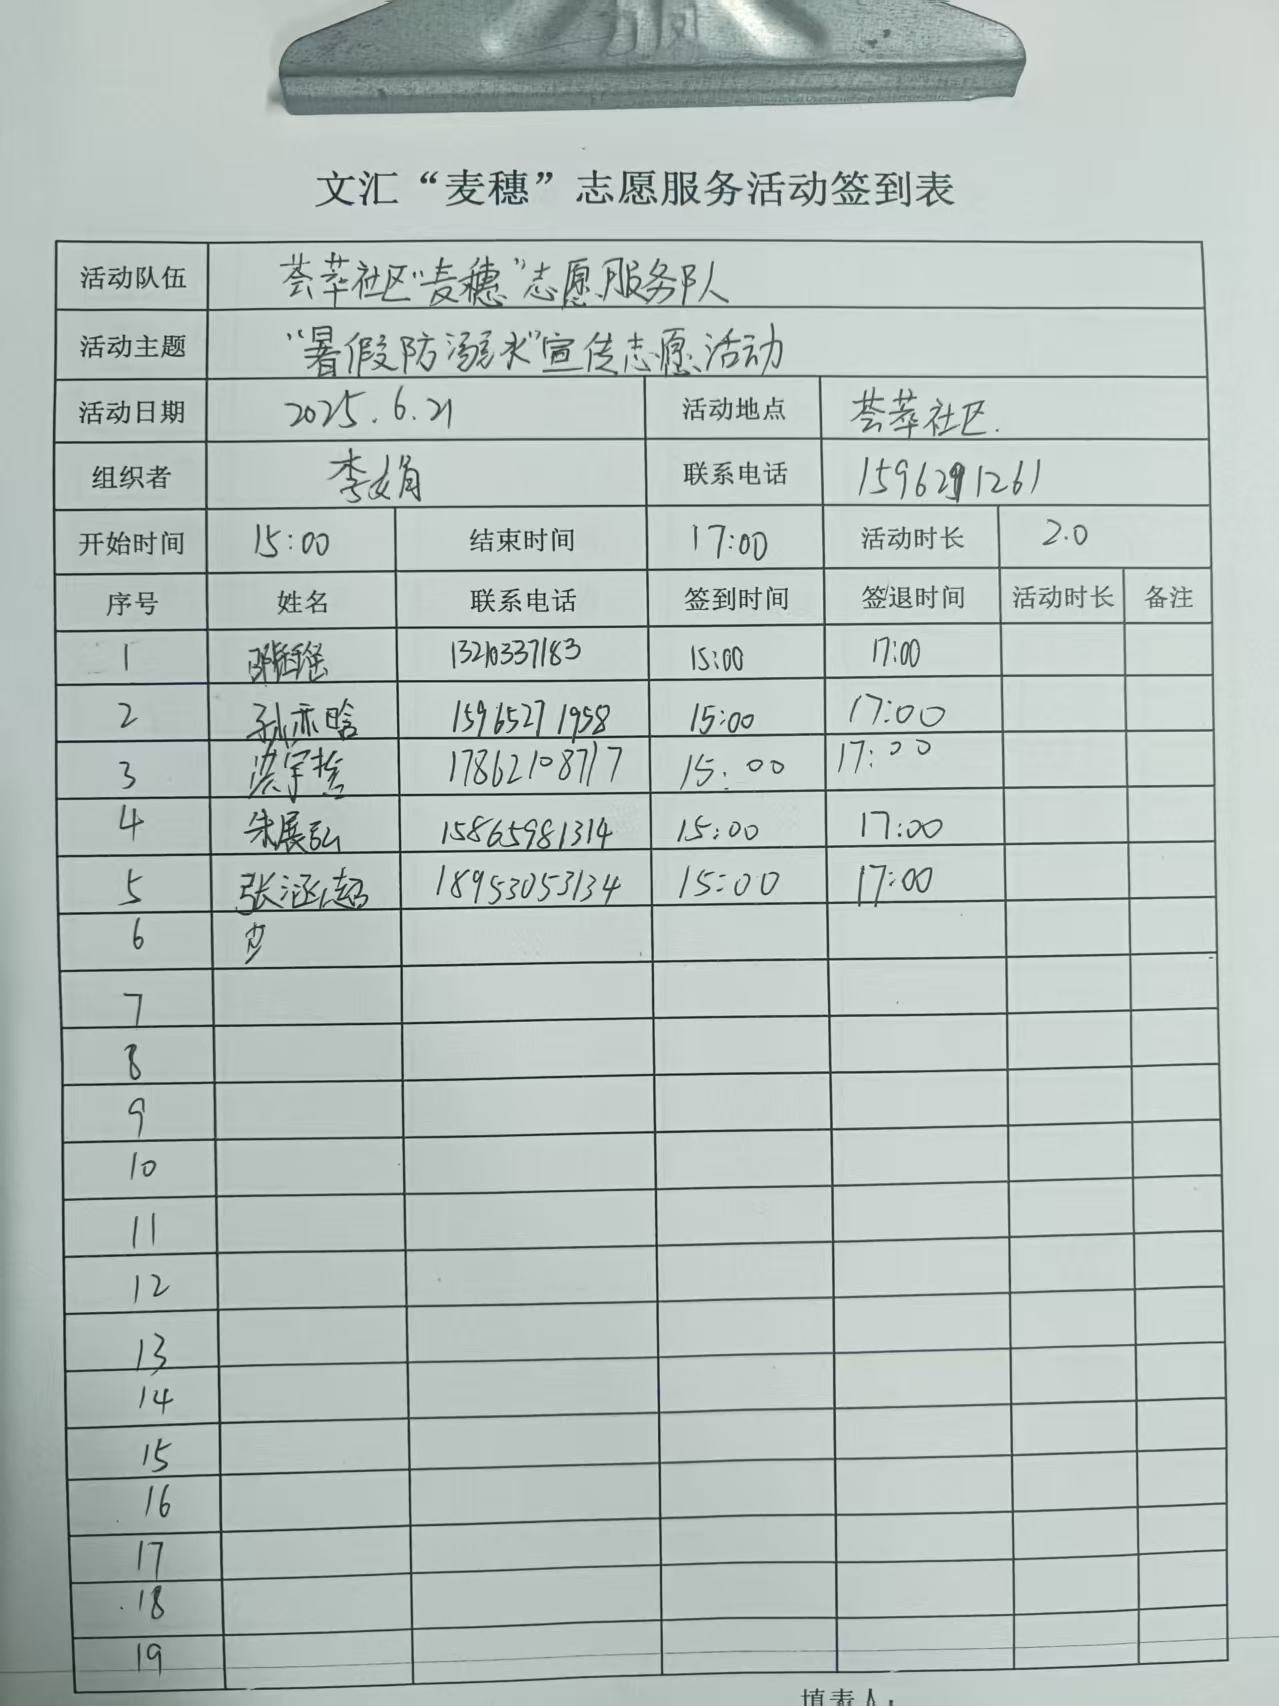 文汇“麦穗”志愿服务活动签到表
活动队伍 荟萃社区“麦穗”志愿服务队
活动主题 “暑假防溺水”宣传志愿活动
活动日期 2025.6.21 活动地点 荟萃社区.
组织者 李娟 联系电话
开始时间 15:00 结束时间 17:00 活动时长 2.0
序号 姓名 联系电话 签到时间 签退时间 活动时长 备注
1 13210337183 15:00 17:00
2 孙亦晗 15965271958 15:00 17:00
3 洪宇哲 17862108717 15:00 17:00
4 朱展弘 15865981314 15:00 17:00
5 张涵 18953053134 15:00 17:00
6
7
8
9
10
11
12
13
14
15
16
17
18
19
填表人：